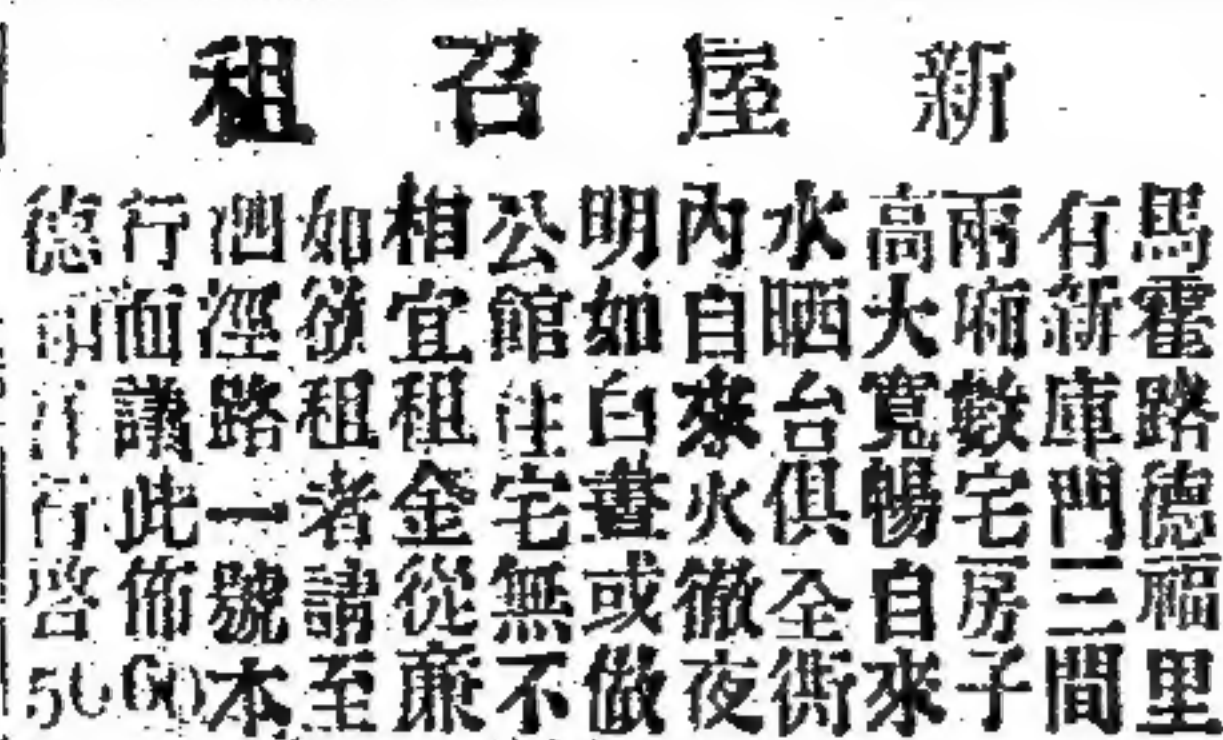 新屋召租
馬霍路德福里
有新庫門三間
兩廂數宅房子
高大寬暢自來
水晒台俱全衖
內自來火徹夜
明如白晝或做
公館住宅無不
相宜租金從廉
如欲租者請至
泗涇路一號本
行面議此佈
德利洋行啓